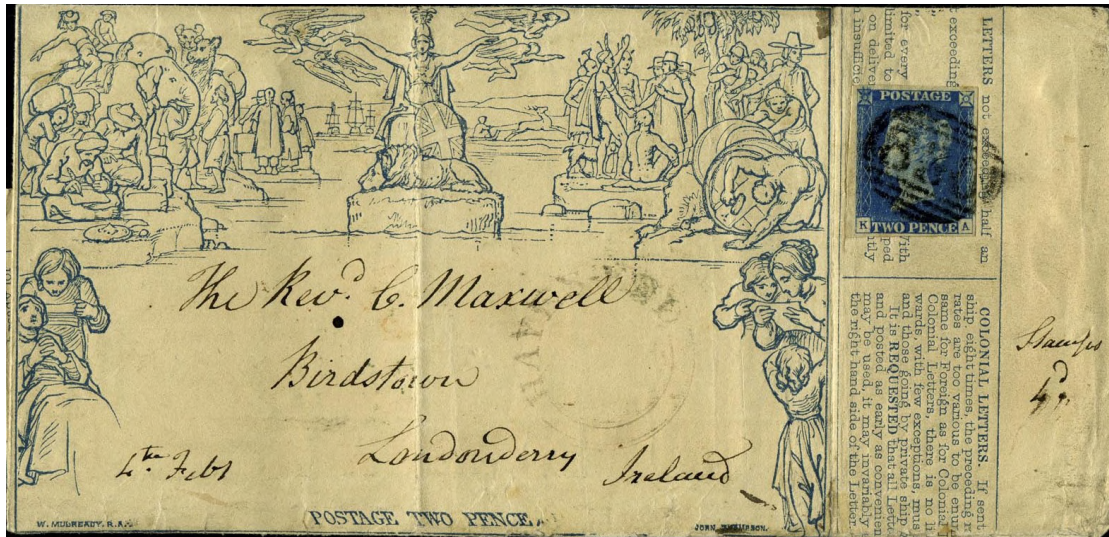 The Revd. C. Maxwell
Birdstown
Londonderry
Ireland
4th Feby
W. MULREADY. R.A.
POSTAGE TWO PENCE
JOHN THOMPSON.
LETTERS not exceeding half an
t exceeding
for every
limited to
on delive
insufficie
With
ped
tly
POSTAGE
K TWO PENCE A
COLONIAL LETTERS. If sent
ship, eight times, the preceding r
rates are too various to be enu
same for Foreign as for Colonia
Colonial Letters, there is no li
wards, with few exceptions, mus
and those going by private ship
It is REQUESTED that all Lette
and posted as early as convenien
may be used, it may invariably
the right hand side of the Letter
Stamps
4d.